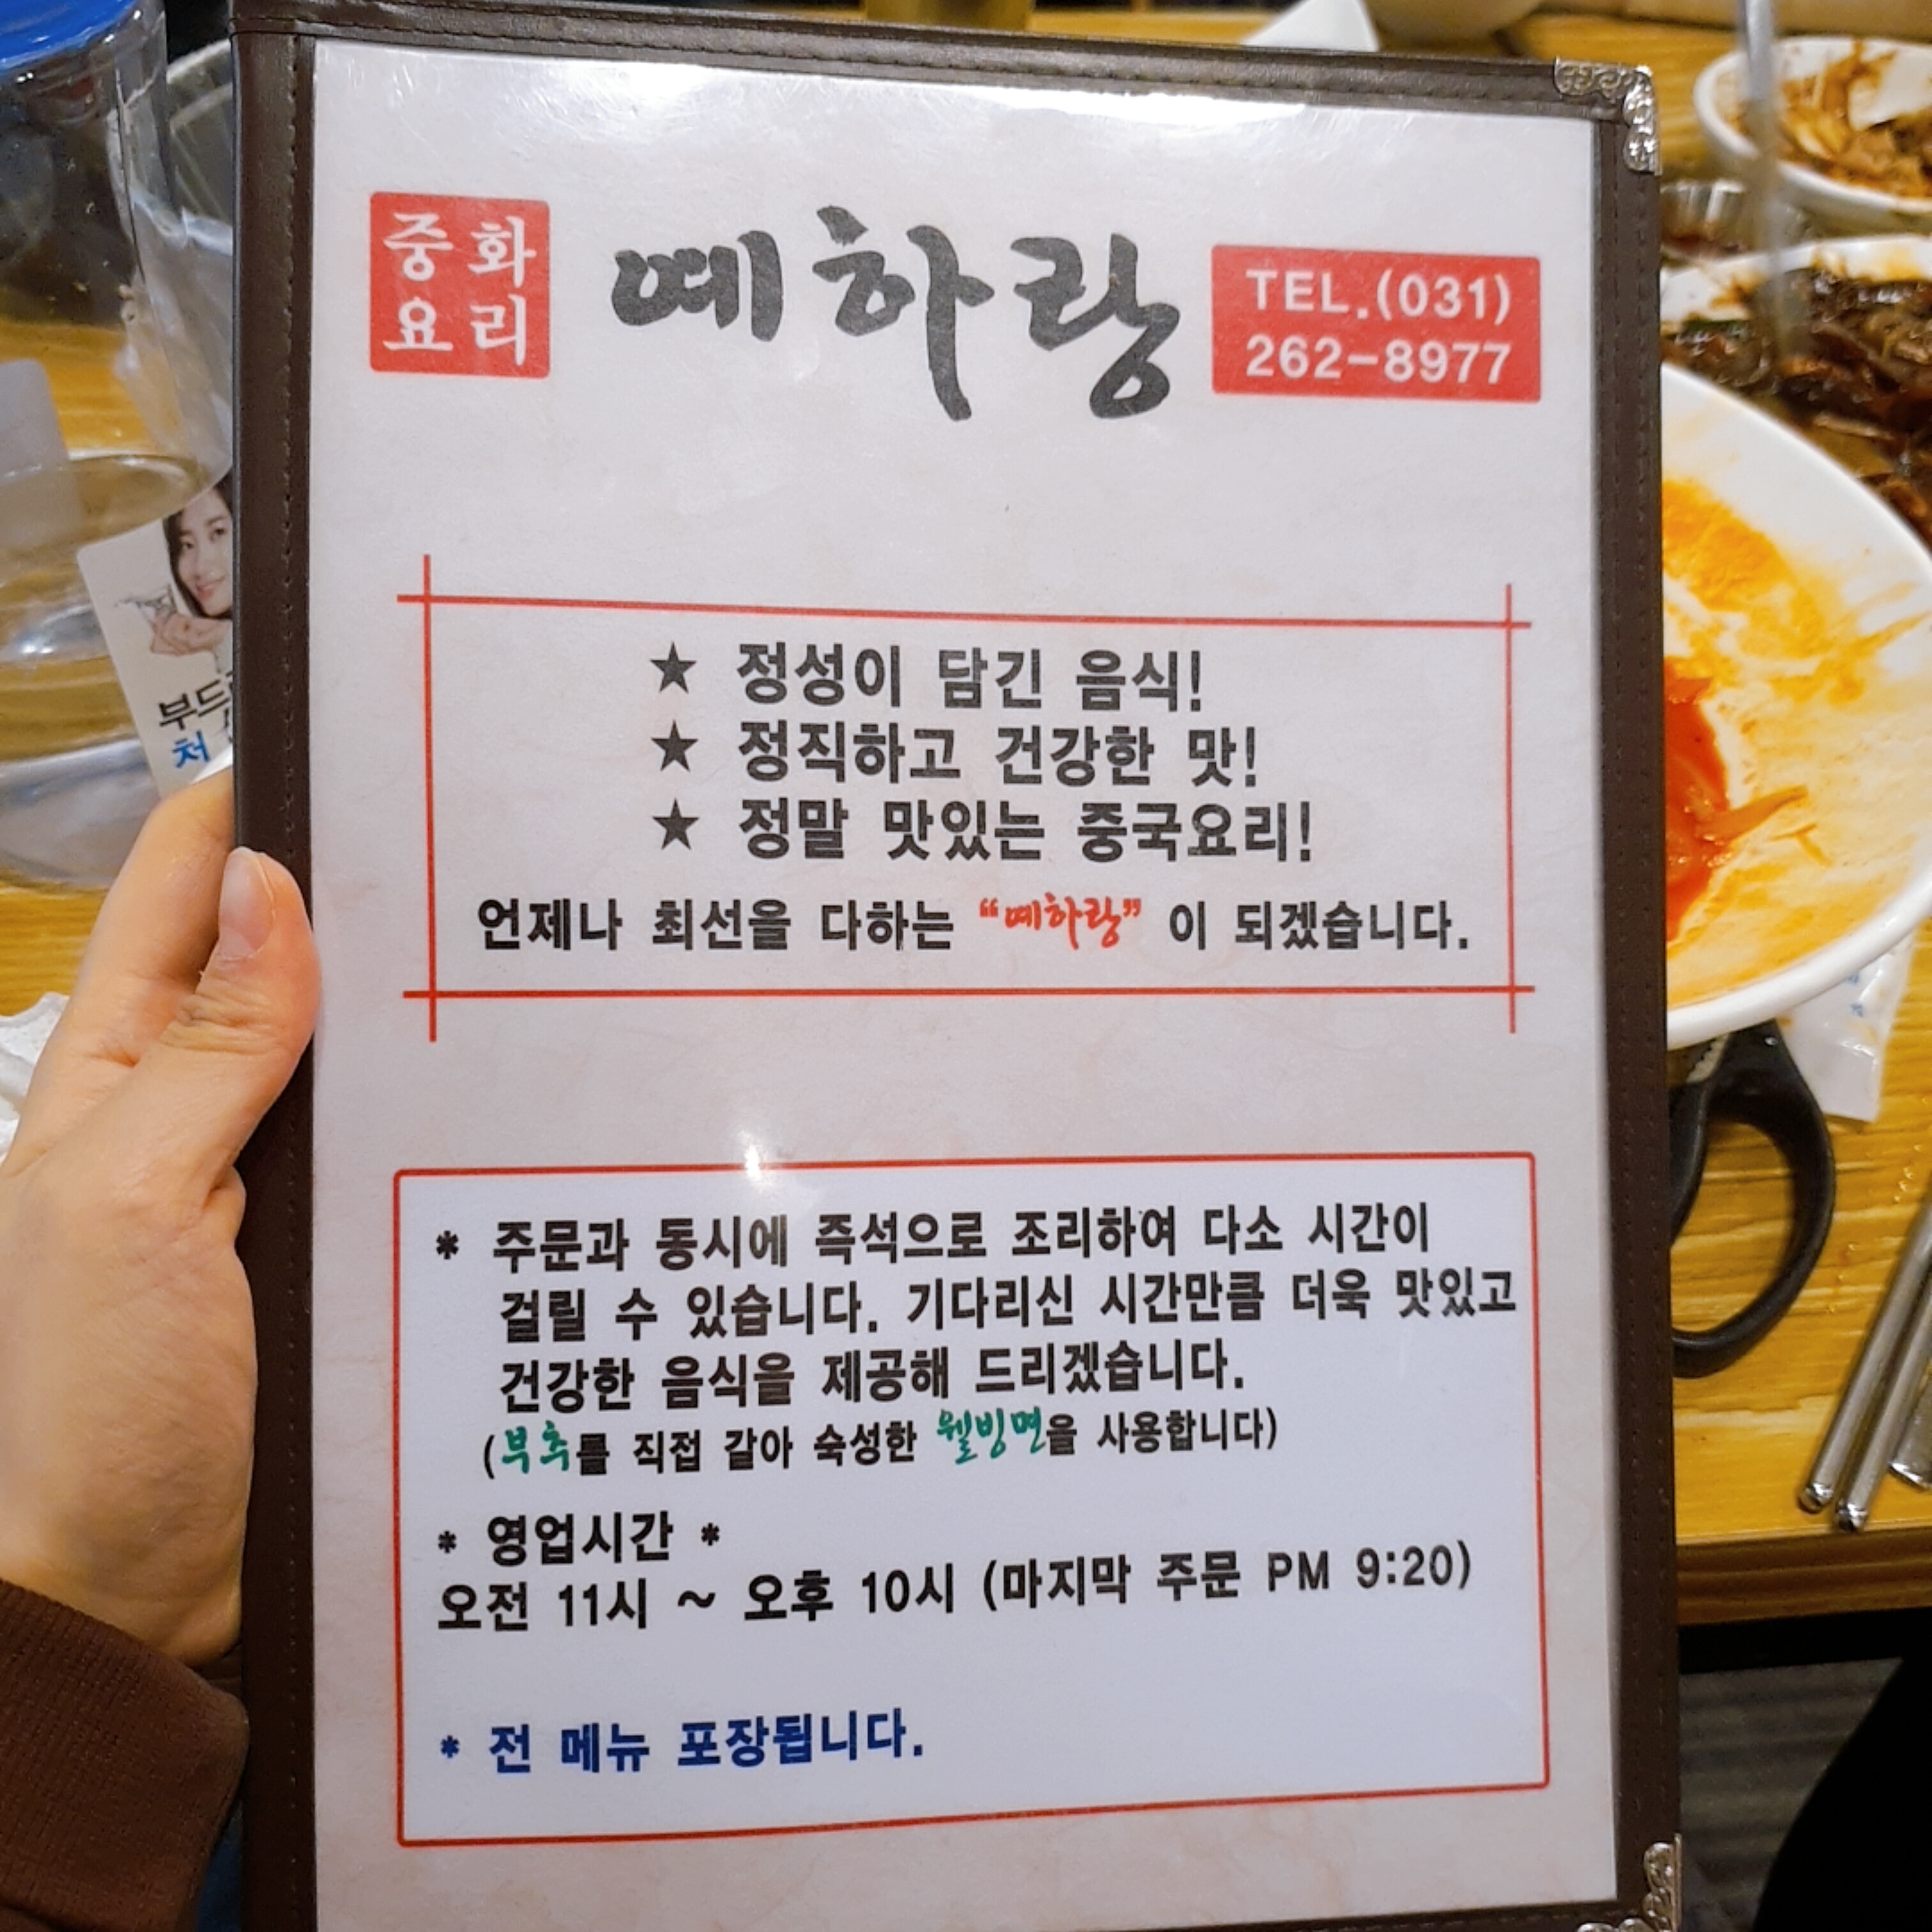 중화
요리
예하랑
TEL.(031)
262-8977
★ 정성이 담긴 음식!
★ 정직하고 건강한 맛!
★ 정말 맛있는 중국요리!
언제나 최선을 다하는 “예하랑” 이 되겠습니다.
* 주문과 동시에 즉석으로 조리하여 다소 시간이
걸릴 수 있습니다. 기다리신 시간만큼 더욱 맛있고
건강한 음식을 제공해 드리겠습니다.
(부추를 직접 갈아 숙성한 웰빙면을 사용합니다)
* 영업시간 *
오전 11시 ~ 오후 10시 (마지막 주문 PM 9:20)
* 전 메뉴 포장됩니다.
부드
처